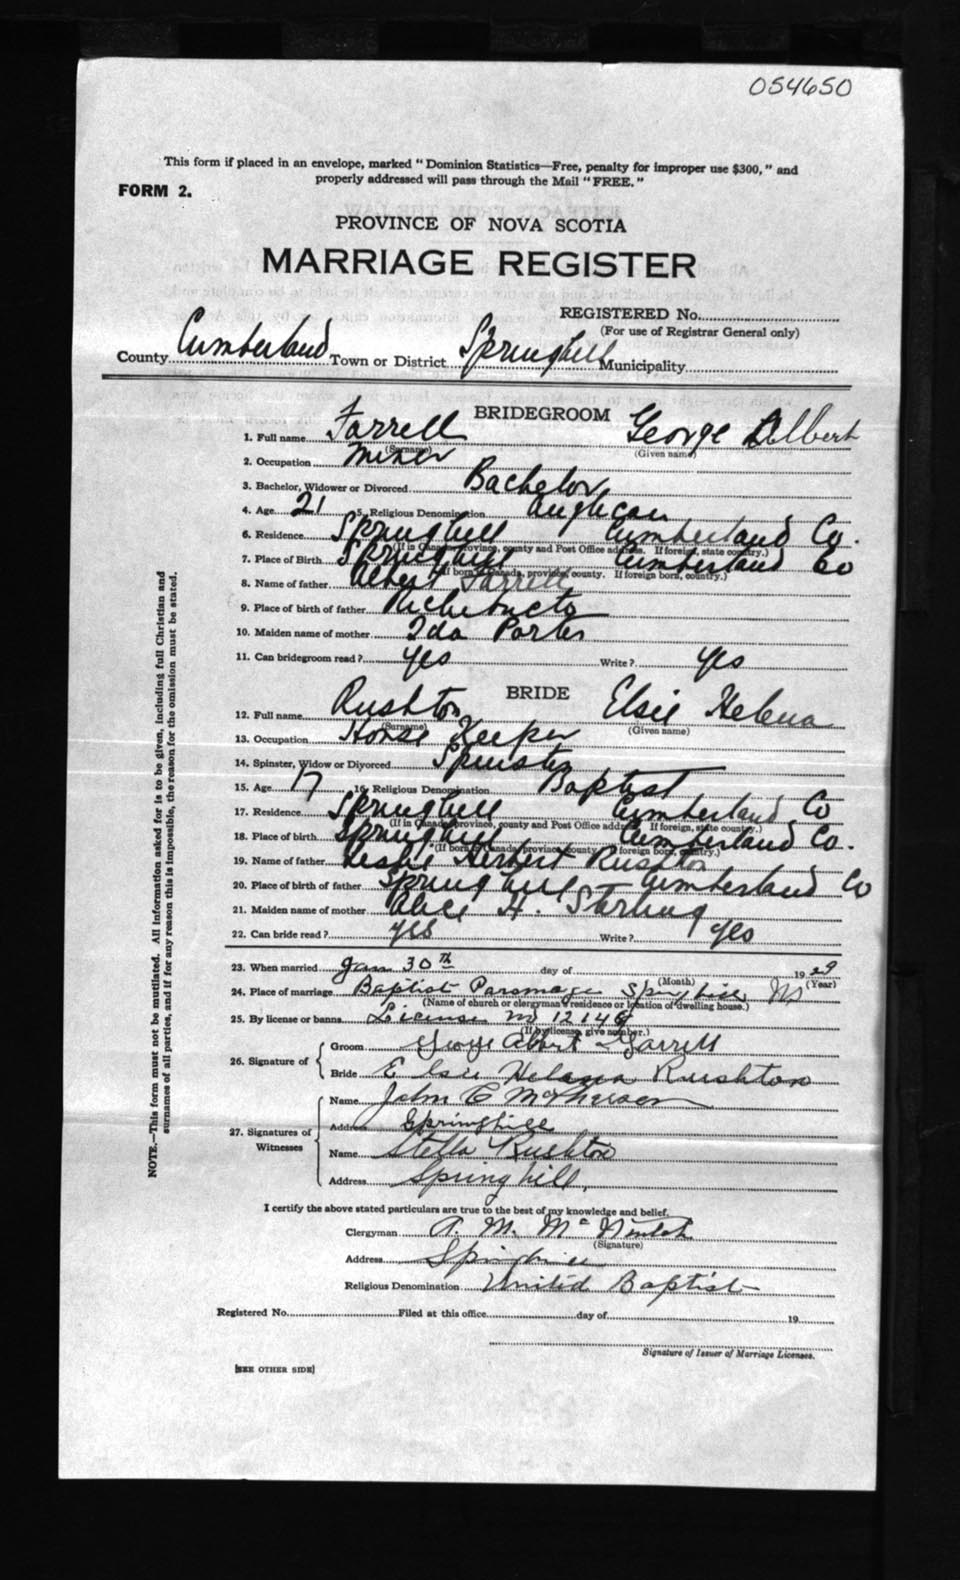 054650
This form if placed in an envelope, marked "Dominion Statistics—Free, penalty for improper use $300," and
properly addressed will pass through the Mail "FREE."
FORM 2.
PROVINCE OF NOVA SCOTIA
MARRIAGE REGISTER
REGISTERED No.
(For use of Registrar General only)
County Cumberland Town or District Springhill Municipality
BRIDEGROOM
1. Full name Farrell George Albert
(Surname) (Given name)
2. Occupation Miner
3. Bachelor, Widower or Divorced Bachelor
4. Age 21 5. Religious Denomination Anglican
6. Residence Springhill Cumberland Co.
(If in Canada, province, county and Post Office address. If foreign, state country.)
7. Place of Birth Springhill Cumberland Co
(If born in Canada, province, county. If foreign born, country.)
8. Name of father Albert Farrell
9. Place of birth of father Richibucto
10. Maiden name of mother Ida Porter
11. Can bridegroom read? yes Write? yes
BRIDE
12. Full name Rushton Elsie Helena
(Surname) (Given name)
13. Occupation House Keeper
14. Spinster, Widow or Divorced Spinster
15. Age 17 16. Religious Denomination Baptist
17. Residence Springhill Cumberland Co
(If in Canada, province, county and Post Office address. If foreign, state country.)
18. Place of birth Springhill Cumberland Co.
(If born in Canada, province, county. If foreign born, country.)
19. Name of father Leslie Herbert Rushton
20. Place of birth of father Springhill Cumberland Co
21. Maiden name of mother Alice H. Sterling
22. Can bride read? yes Write? yes
23. When married Jan 30th day of 1929
(Month) (Year)
24. Place of marriage Baptist Parsonage Springhill NS
(Name of church or clergyman's residence or location of dwelling house.)
25. By license or banns License No 12146
(If by license, give number.)
26. Signature of
Groom George Albert Farrell
Bride Elsie Helena Rushton
27. Signatures of Witnesses
Name John C McPherson
Address Springhill
Name Stella Rushton
Address Springhill,
I certify the above stated particulars are true to the best of my knowledge and belief.
Clergyman
(Signature)
Address Springhill
Religious Denomination United Baptist
Registered No. Filed at this office day of 19
Signature of Issuer of Marriage Licenses.
[SEE OTHER SIDE]
NOTE.—This form must not be mutilated. All information asked for is to be given, including full Christian and
surnames of all parties, and if for any reason this is impossible, the reason for the omission must be stated.